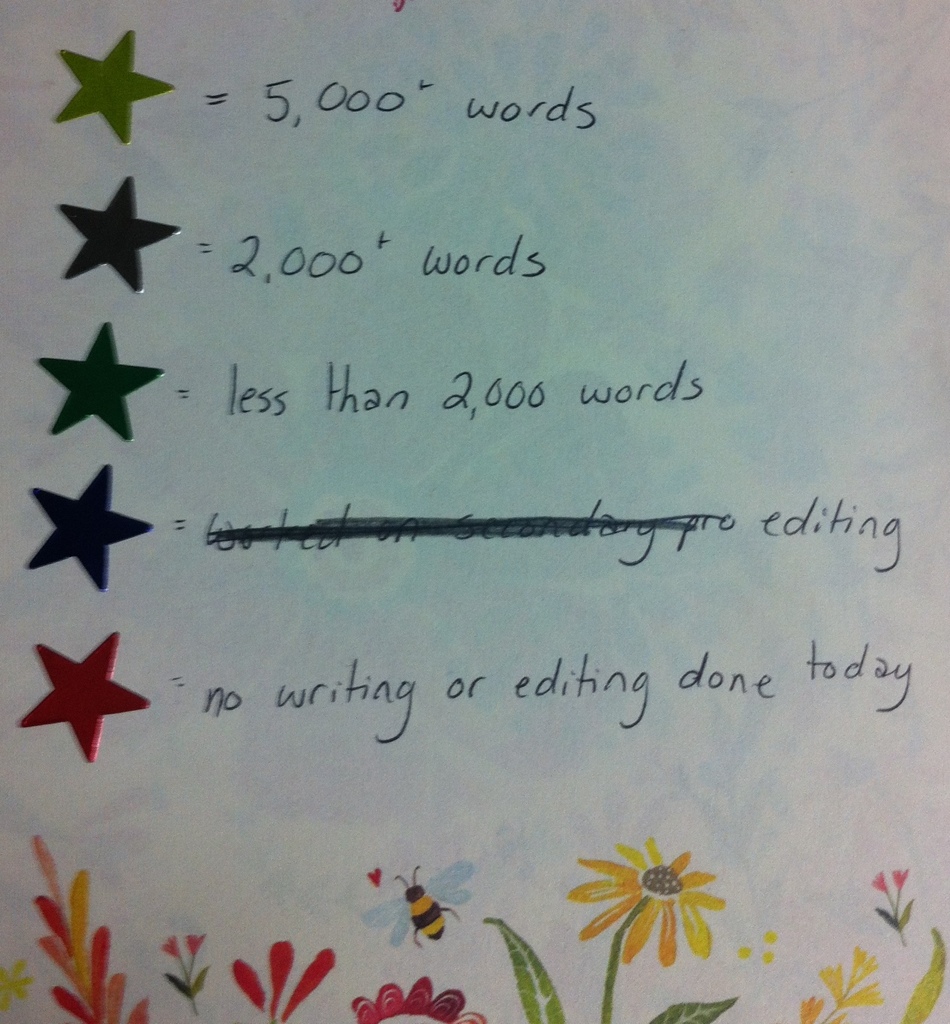 = 5,000+ words
= 2,000+ words
= less than 2,000 words
= worked on secondary pro editing
= no writing or editing done today